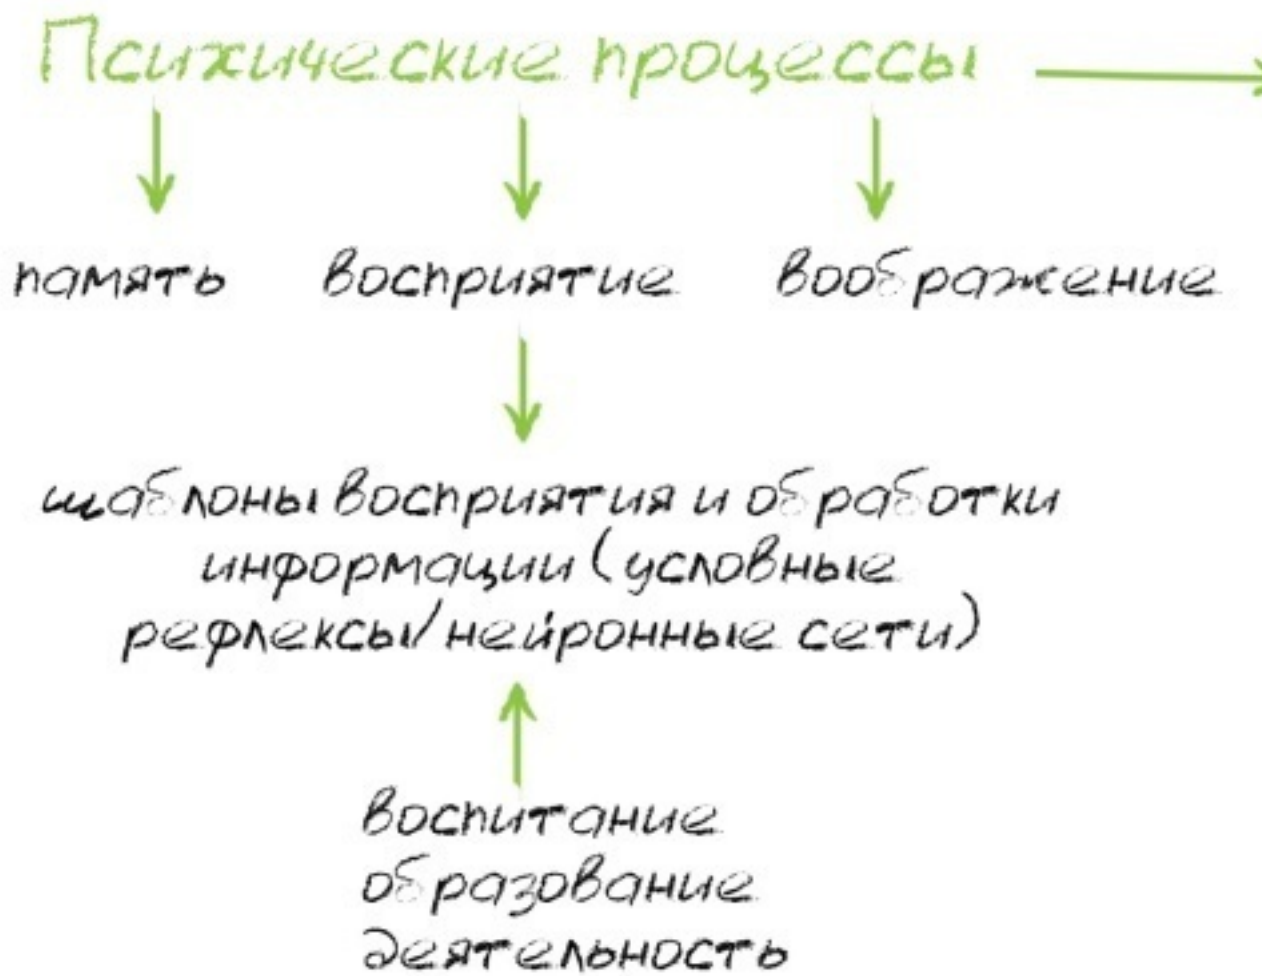 Психические процессы
память восприятие воображение
шаблоны восприятия и обработки
информации (условные
рефлексы/нейронные сети)
воспитание
образование
деятельность